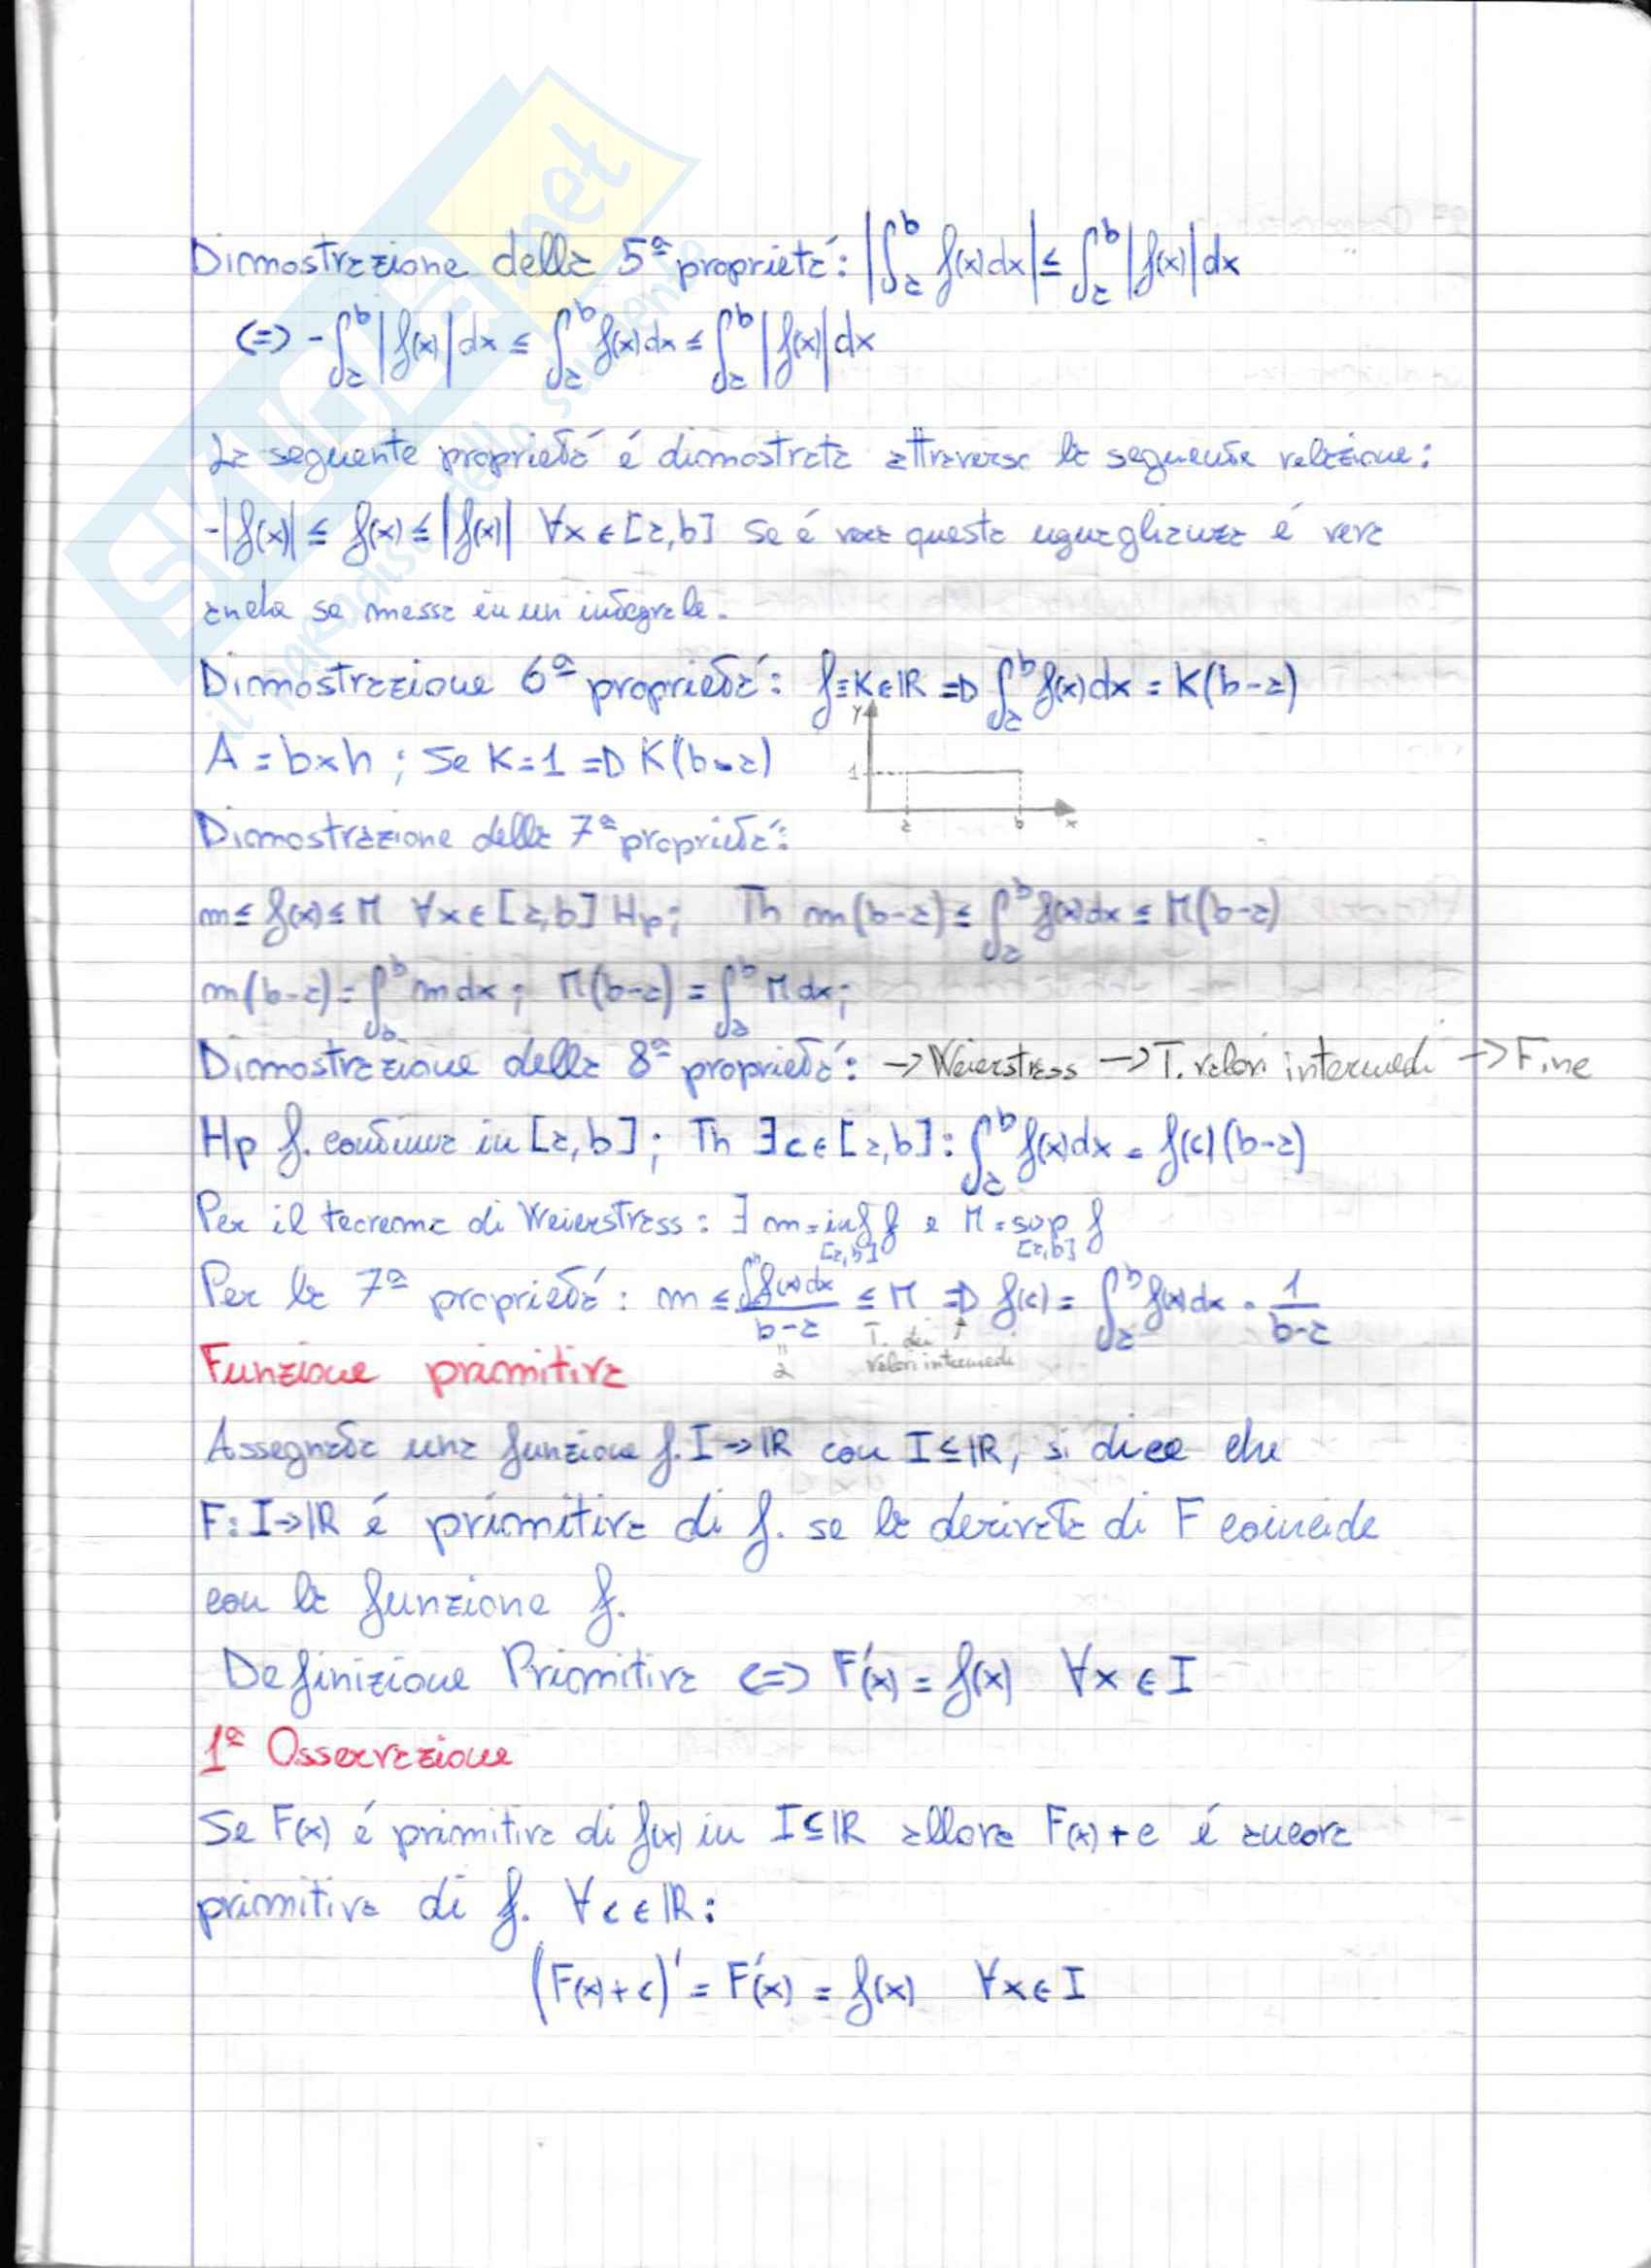 Dimostrazione della 5ª proprietá: |∫ₐᵇ f(x)dx| ≤ ∫ₐᵇ |f(x)|dx
<=> -∫ₐᵇ |f(x)|dx ≤ ∫ₐᵇ f(x)dx ≤ ∫ₐᵇ |f(x)|dx
La seguente proprietá é dimostrata attraverso la seguente relazione:
-|f(x)| ≤ f(x) ≤ |f(x)| ∀x ∈ [a,b] Se é vera questa uguaglianza é vera
anche se messa in un integrale.
Dimostrazione 6ª proprietá: f=K∈ℝ => ∫ₐᵇ f(x)dx = K(b-a)
A = b×h ; Se K=1 => K(b-a)
y
1
a b x
Dimostrazione della 7ª proprietá:
m ≤ f(x) ≤ M ∀x ∈ [a,b] Hp; Th m(b-a) ≤ ∫ₐᵇ f(x)dx ≤ M(b-a)
m(b-a) = ∫ₐᵇ m dx ; M(b-a) = ∫ₐᵇ M dx;
Dimostrazione della 8ª proprietá: -> Weierstrass -> T. valori intermedi -> Fine
Hp f. continua in [a,b]; Th ∃c ∈ [a,b]: ∫ₐᵇ f(x)dx = f(c)(b-a)
Per il teorema di Weierstrass: ∃ m = inf f e M = sup f
[a,b] [a,b]
Per la 7ª proprietá: m ≤ ∫f(x)dx / b-a ≤ M => f(c) = ∫ₐᵇ f(x)dx · 1/b-a
T. dei ↑
valori intermedi
Funzione primitiva
Assegnata una funzione f. I->ℝ con I⊆ℝ, si dice che
F: I->ℝ é primitiva di f. se la derivata di F coincide
con la funzione f.
Definizione Primitiva <=> F'(x) = f(x) ∀x ∈ I
1ª Osservazione
Se F(x) é primitiva di f(x) in I⊆ℝ allora F(x)+c é ancora
primitiva di f. ∀c∈ℝ:
(F(x)+c)' = F'(x) = f(x) ∀x∈I
SKUOLA.net
il paradiso dello studente